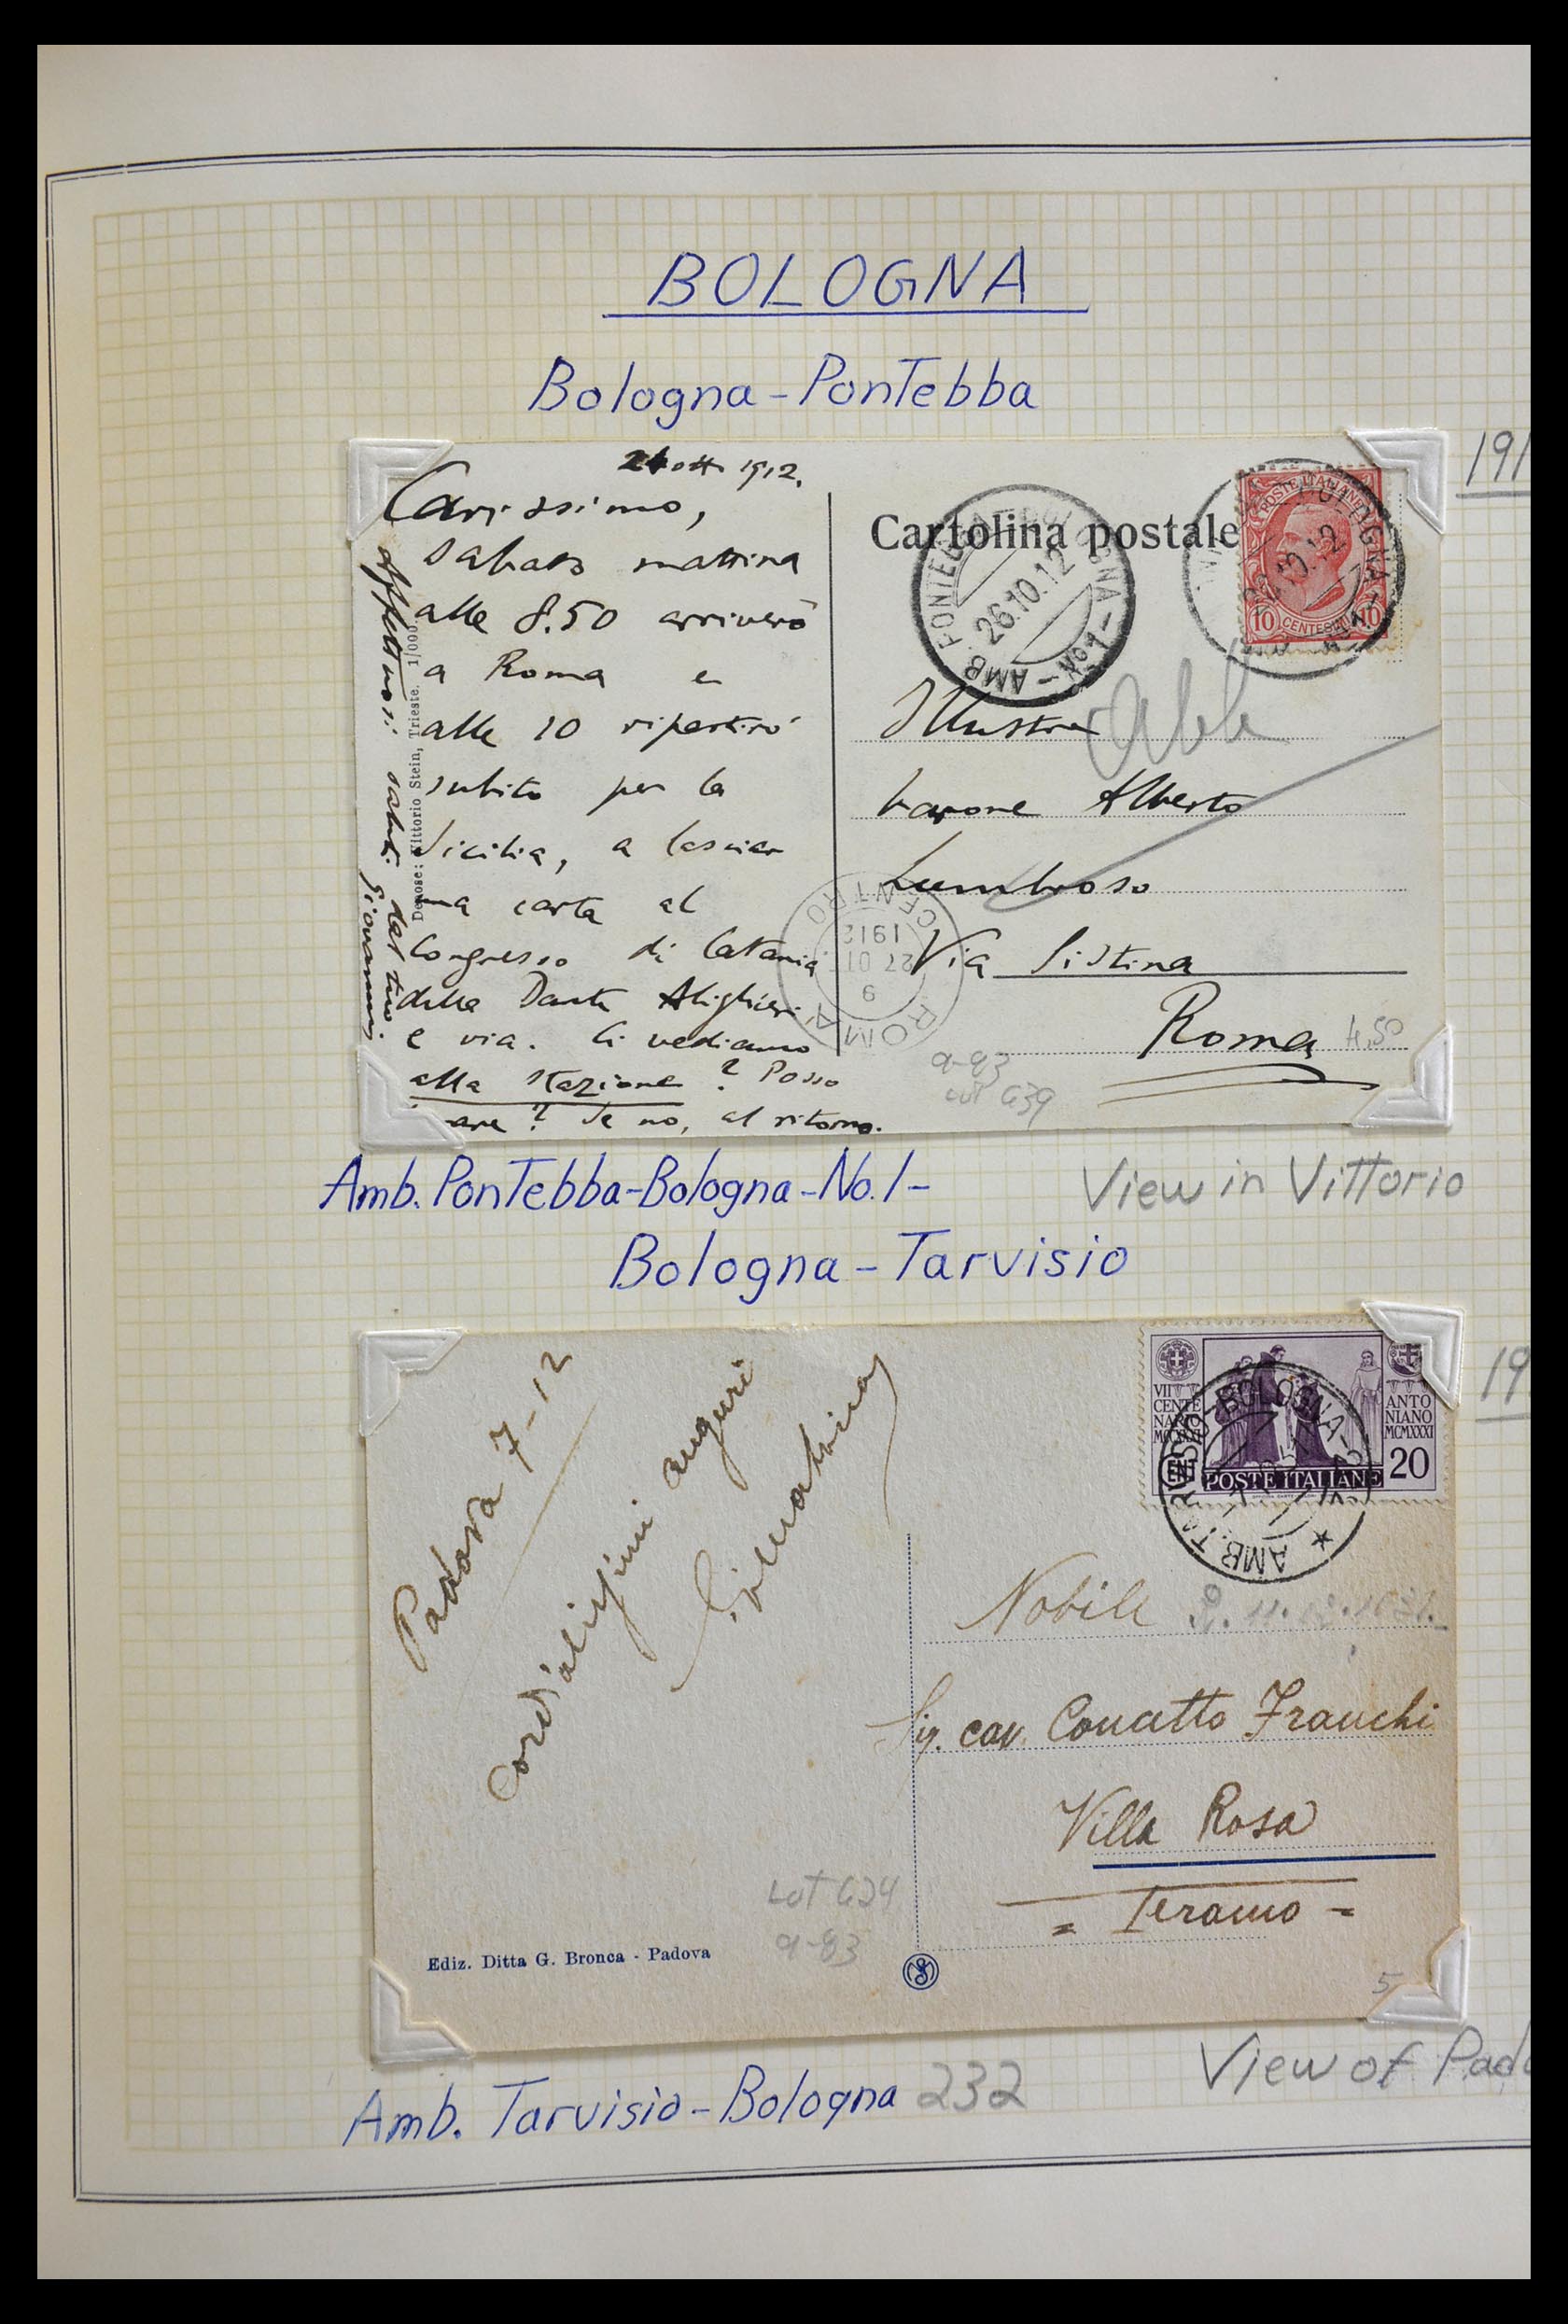 BOLOGNA
Bologna-Pontebba
191
24 ott 1912.
Carissimo,
sabato mattina
alle 8.50 arriverò
a Roma e
alle 10 ripartirò
subito per la
Sicilia, a lasciar
una carta al
Congresso di Catania
della Dante Alighieri
e via. Ci vediamo
alla stazione? Posso
? Se no, al ritorno.
affettuosi saluti dal tuo
Giovanni
Depose: Vittorio Stein, Trieste. 1/000
Cartolina postale
AMB. PONTEBBA-BOLOGNA-No1-
26.10.12
BOLOGNA
POSTE ITALIANE
10 CENTESIMI 10
Illustre
barone Alberto
Lumbroso
Via Sistina
Roma
4,50
ROMA CENTRO
9
27 10
1912
9-93
Lot G39
Amb. Pontebba-Bologna-No.1-
View in Vittorio
Bologna-Tarvisio
19
Padova 7-12
Cordialissimi auguri
VII CENTENARIO MCMXXXI
ANTONIANO MCMXXXI
CENT 20
POSTE ITALIANE
AMB. TARVISIO-BOLOGNA
Nobile
Sig. cav. Franchi
Villa Rosa
= Teramo =
Lot G24
9-93
Ediz. Ditta G. Bronca - Padova
5
Amb. Tarvisio-Bologna 232
View of Pado